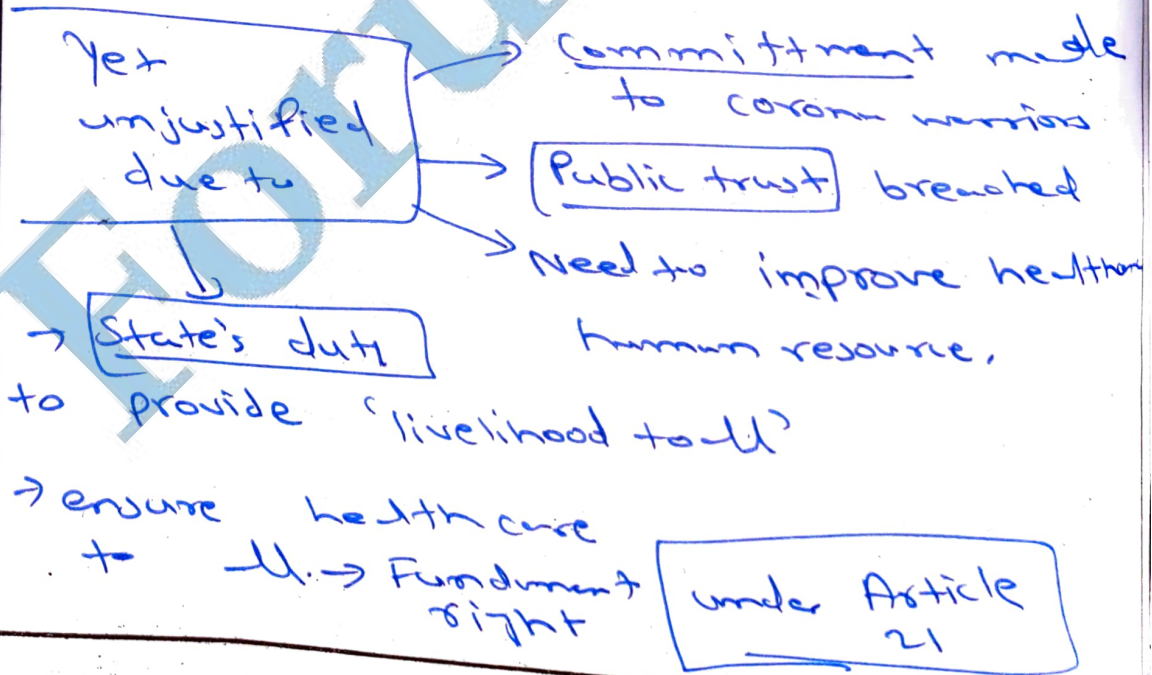 Yet
unjustified
due to
→ Committment made
to corona warriors
→ Public trust breached
→ Need to improve healthcare
human resource.
→ State's duty
to provide 'livelihood to all'
→ ensure healthcare
to all. → Fundament
right
under Article
21
Foru